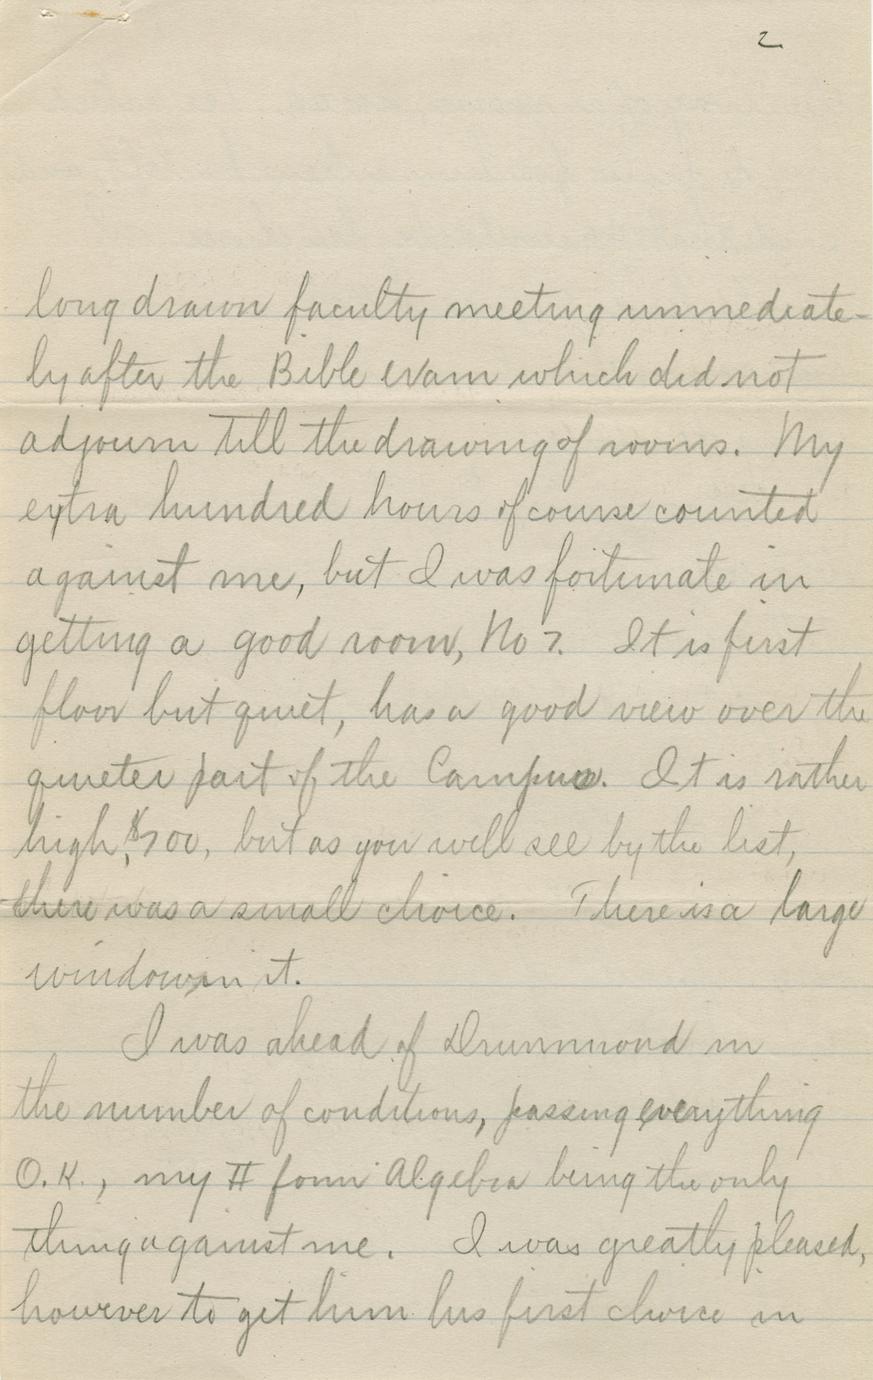 2
long drawn faculty meeting immediate-
ly after the Bible exam which did not
adjourn till the drawing of rooms. My
extra hundred hours of course counted
against me, but I was fortunate in
getting a good room, No 7. It is first
floor but quiet, has a good view over the
quieter part of the Campus. It is rather
high, $700, but as you will see by the list,
there was a small choice. There is a large
window in it.
I was ahead of Drummond in
the number of conditions, passing everything
O.K., my II form Algebra being the only
thing against me. I was greatly pleased,
however to get him his first choice in